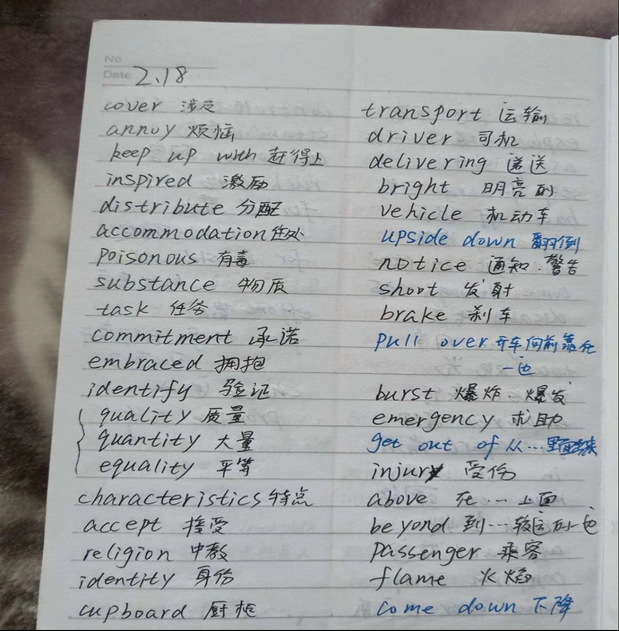 No
Date 2.18
cover 涉及
annoy 烦恼
keep up with 赶得上
inspired 激励
distribute 分配
accommodation 住处
poisonous 有毒
substance 物质
task 任务
commitment 承诺
embraced 拥抱
identify 验证
quality 质量
quantity 大量
equality 平等
characteristics 特点
accept 接受
religion 中教
identity 身份
cupboard 厨柜
transport 运输
driver 司机
delivering 递送
bright 明亮的
vehicle 机动车
upside down 翻倒
notice 通知.警告
shoot 发射
brake 刹车
pull over 开车向前靠在
一边
burst 爆炸 爆发
emergency 求助
get out of 从…里
injury 受伤
above 在…上面
beyond 到…较远的一边
passenger 乘客
flame 火焰
come down 下降